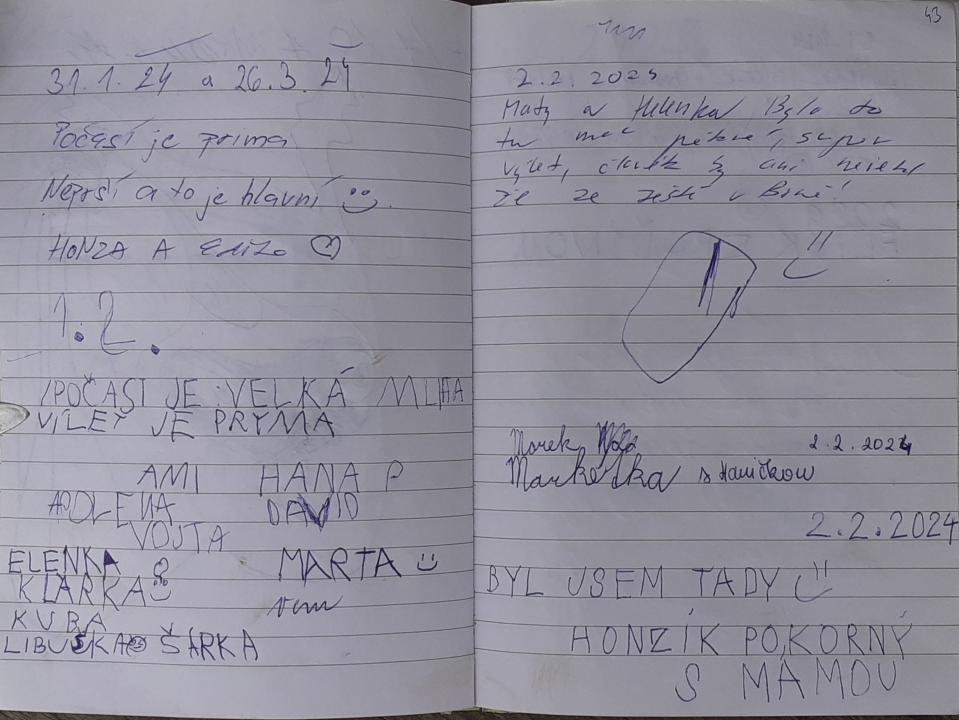 31.1.24 a 26.3.24
Počasí je prima
Neprší a to je hlavní
HONZA A
1.2.
POČASI JE VELKÁ MLHA
VÍLET JE PRYMA
AMI HANA P
ADLENA DAVID
VOJTA
ELENKA MARTA
KLÁRKA
KUBA
LIBUŠKA ŠÁRKA
43
2.2.2024
Maty a Helenka Bylo to
tu moc pěkné, super
výlet, člověk by ani neřekl
že je ještě v Brně!
Marek 2.2.2024
Markétka s Haničkou
2.2.2024
BYL JSEM TADY
HONZÍK POKORNÝ
S MÁMOU